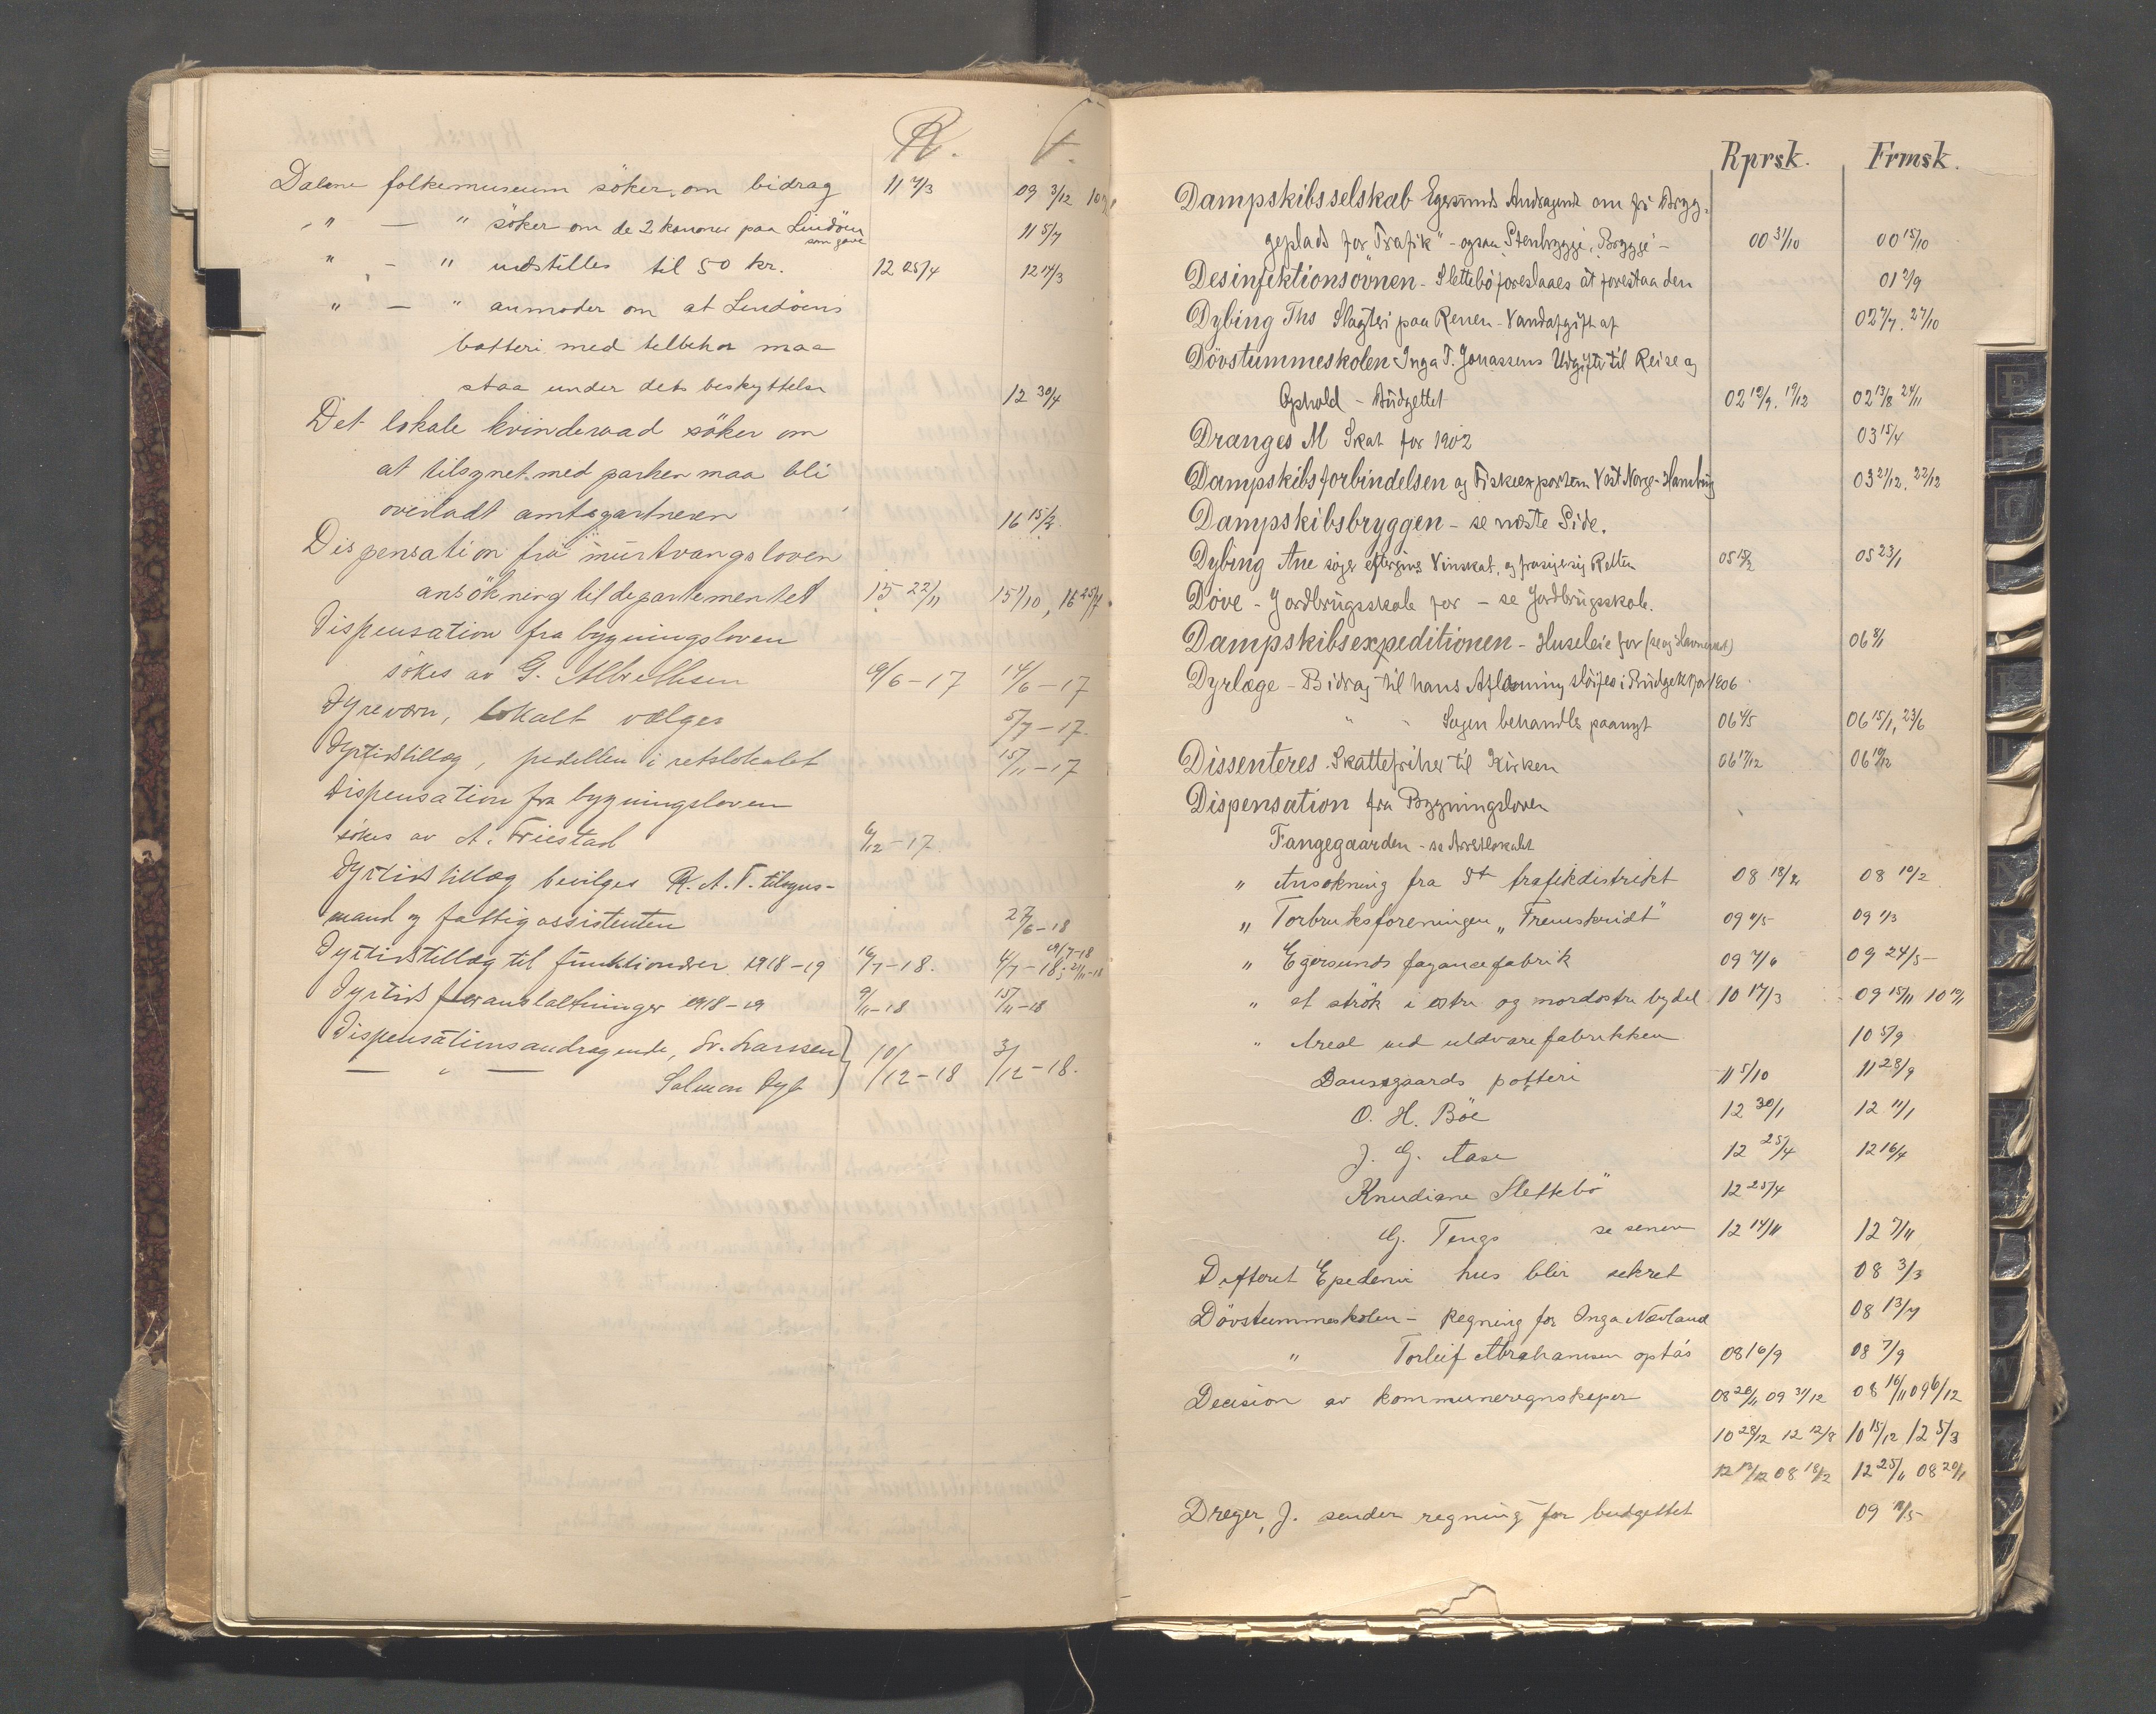 R. F.
Dalene folkemuseum söker om bidrag 11 7/3 09 3/12
" — " söker om de 2 kanoner paa Lindöen som gave 11 5/7
" — " indstilles til 50 kr. 12 25/4 12 14/3
" — " anmoder om at Lindöens
batteri med tilbehör maa
staa under dets beskyttelse 12 30/4
Det lokale kvinderaad söker om
at tilsynet med parken maa bli
overladt amtsgartneren 16 15/2
Dispensation fra murtvangsloven
ansökning til departementet 15 22/11 15 1/10, 16 25/7
Dispensation fra bygningsloven
sökes av G. Albrethsen 19/6 – 17 14/6 – 17
Dyrevern, lokalt vælges 5/7 – 17.
Dyrtidstillæg, pedellen i retslokalet 15/11 – 17
Dispensation fra bygningsloven
sökes av A. Friestad 6/12 – 17.
Dyrtidstillæg bevilges R. A. T. tilsyns-
mand og fattigassistenten 27/6 – 18
Dyrtidstillæg til funktionærer 1918 – 19 16/7 – 18. 4/7 – 18; 21/11 – 18
Dyrtidsforanstaltninger 1918 – 19 9/11 – 18 15/11 – 18
Dispensationsandragende, Lv. Larssen 10/12 – 18 3/12 – 18.
— " — Salmon Dyb
Rprsk. Frmsk.
Dampskibsselskab Egersunds Andragende om få Brygg-
geplads for "Trafik" – ogsaa Stenbrygge, Brygge – 00 31/10 00 15/10
Desinfektionsovnen – Slettebö foreslaaes at forestaa den 01 2/9
Dybing Ths Slagteri paa Renen – Vandafgift af 02 7/7. 27/10
Dövstummeskolen Inga T. Jonassens Udgifter til Reise og
Ophold – Budgettet 02 12/9. 19/12 02 13/8 24/11
Dranges M Skat for 1902 03 15/4
Dampskibsforbindelsen og Fiskeexporten Vest Norge – Hamburg 03 21/12. 22/12
Dampskibsbryggen – se næste Side.
Dybing Ane søger eftergivet Vinskat, og frasiger sig Retten 05 15/2 05 23/1
Döve – Jordbrugsskole for – se Jordbrugsskole.
Dampskibsexpeditionen – Husleie for (se og Havnevæs.) 06 8/1
Dyrlæge – Bidrag til hans Aflønning sløifes i Budgettet for 1906
" " Sagen behandles paanyt 06 4/5 06 15/1, 23/6
Dissenteres Skattefrihet til Kirken 06 17/12 06 10/12
Dispensation fra Bygningsloven
Fangegaarden – se Arrestlokalet
" Ansökning fra 5te trafikdistrikt 08 18/2 08 10/2
" Forbruksforeningen "Fremskridt" 09 4/5 09 1/3
" Egersunds fayancefabrik 09 7/6 09 24/5
" et strök i östre og nordöstre bydel 10 17/3 09 15/11 10 10/1
" Areal ved uldvarefabrikken 10 5/9
Daunsgaards potteri 11 5/10 11 28/9
O. H. Böe 12 30/1 12 11/1
J. G. Aase 12 25/4 12 16/4
Knudiane Slettebö 12 25/4
G. Tengs se senere 12 14/11 12 7/11
Difterit Epedemi hus blir sekret 08 3/3
Dövstummeskolen – Regning for Inga Nævland 08 13/7
" Torleif Abrahamsen optas 08 16/9 08 7/9
Decision av kommuneregnskaper 08 26/11 09 31/12 08 16/11 09 6/12
10 28/12 12 12/8 10 15/12 12 5/3
12 13/12 08 18/2 12 25/11 08 20/1
Dreger, J. sender regning for budgettet 09 11/5